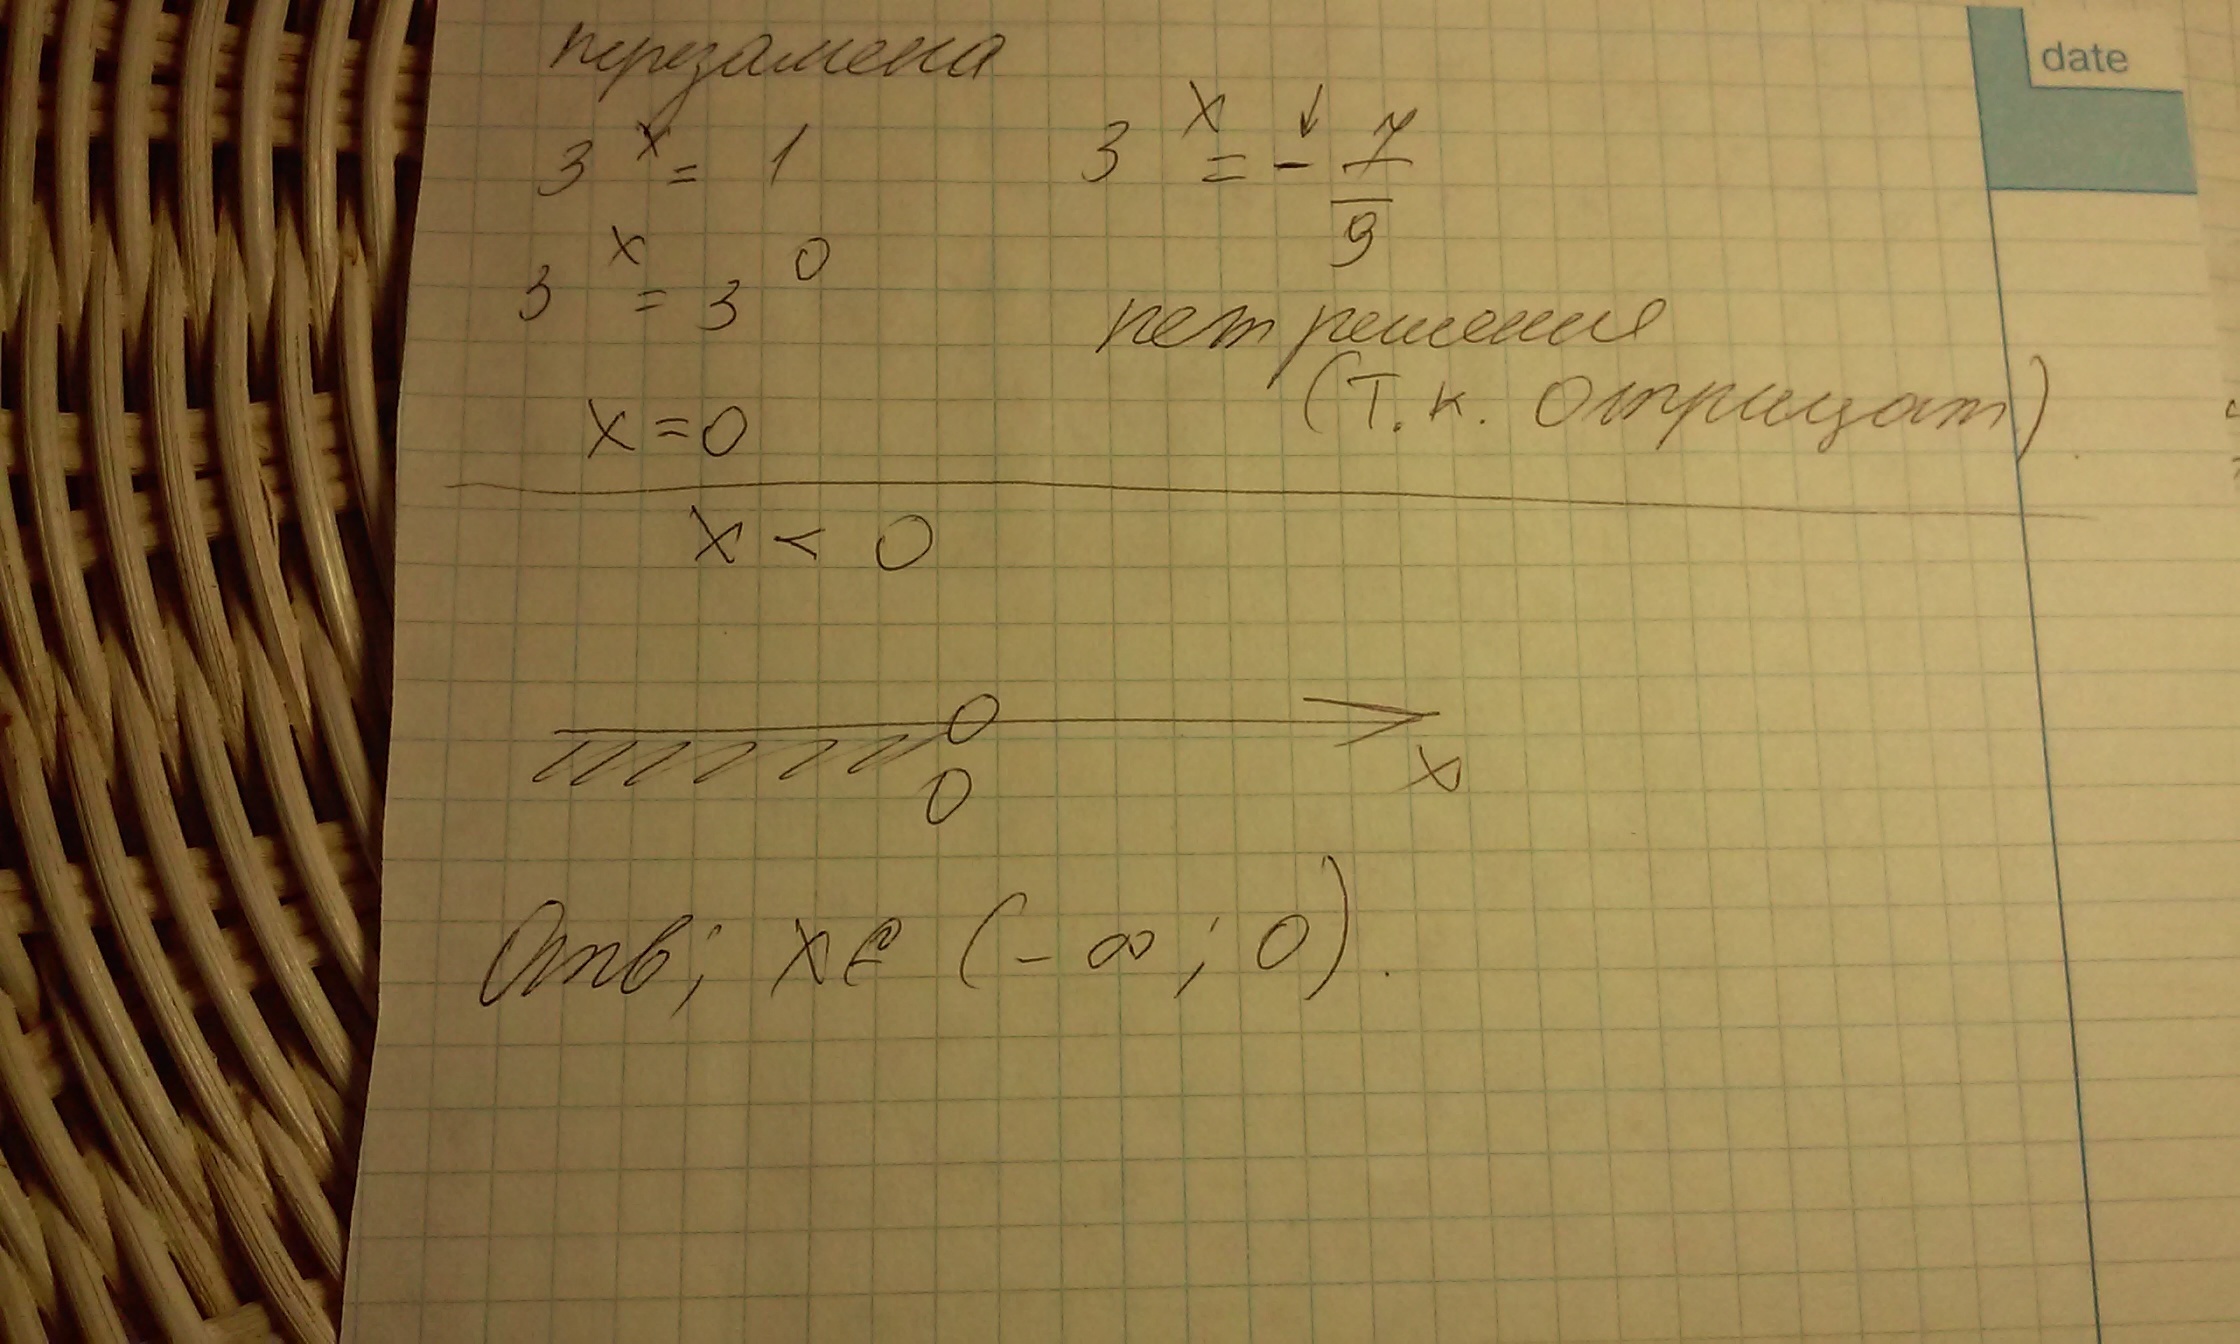 date
перезамена
3^x = 1
3^x = - 7/9
3^x = 3^0
нет решения
x = 0
(т.к. отрицат)
x < 0
0
x
Отв; x ∈ (- ∞ ; 0).